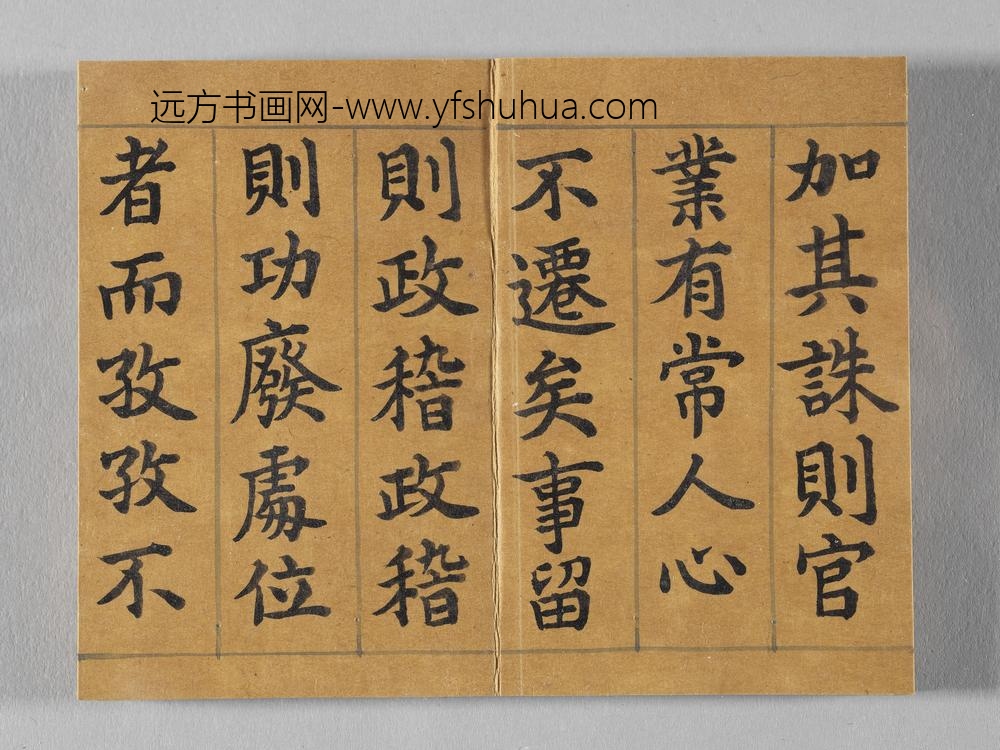 远方书画网-www.yfshuhua.com
加其誅則官
業有常人心
不遷矣事留
則政稽政稽
則功廢處位
者而孜孜不